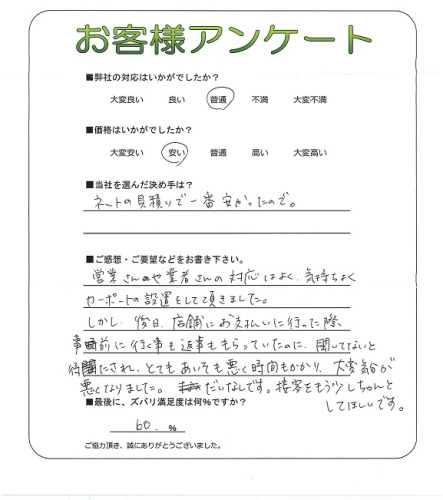 お客様アンケート
■弊社の対応はいかがでしたか?
大変良い 良い 普通 不満 大変不満
■価格はいかがでしたか?
大変安い 安い 普通 高い 大変高い
■当社を選んだ決め手は?
ネットの見積りで一番安かったので。
■ご感想・ご要望などをお書き下さい。
営業さんや業者さんの対応はよく、気持ちよく
カーポートの設置をして頂きました。
しかし、後日、店舗にお支払いに行った際、
事前に行く事も返事ももらっていたのに、聞いてないと
待たされ、とてもあいそも悪く時間もかかり、大変気分が
悪くなりました。 だいなしです。接客をもう少しちゃんと
してほしいです。
■最後に、ズバリ満足度は何%ですか?
60. %
ご協力頂き、誠にありがとうございました。